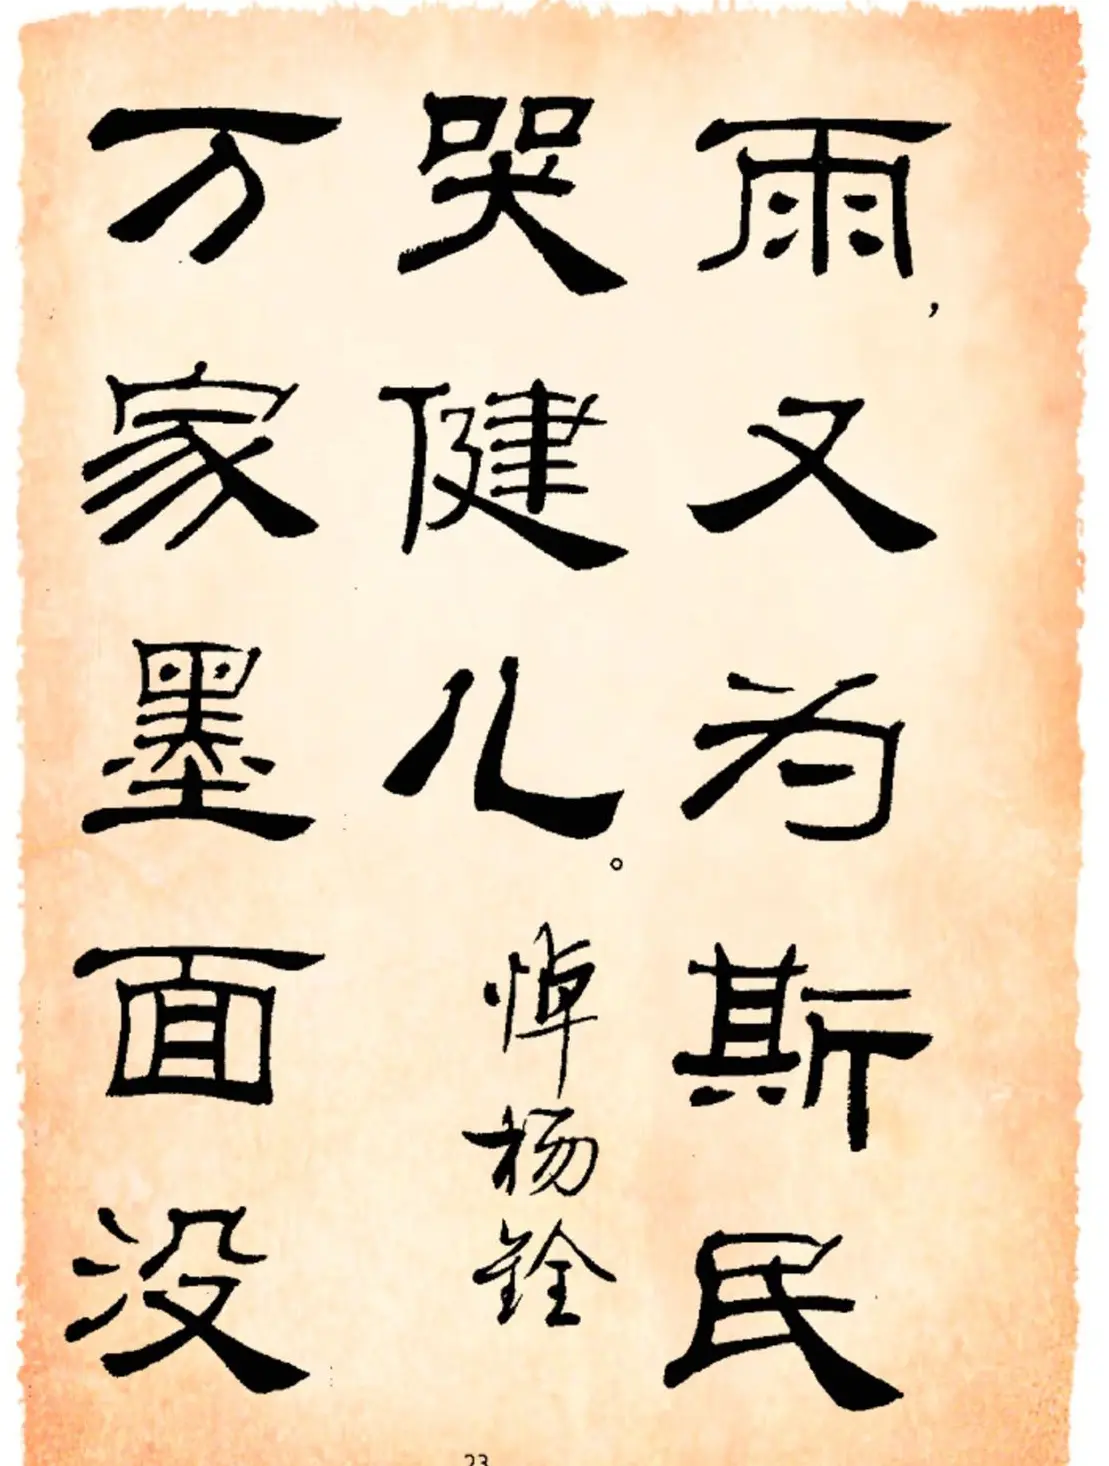 雨，又为斯民
哭健儿。悼杨铨
万家墨面没
23